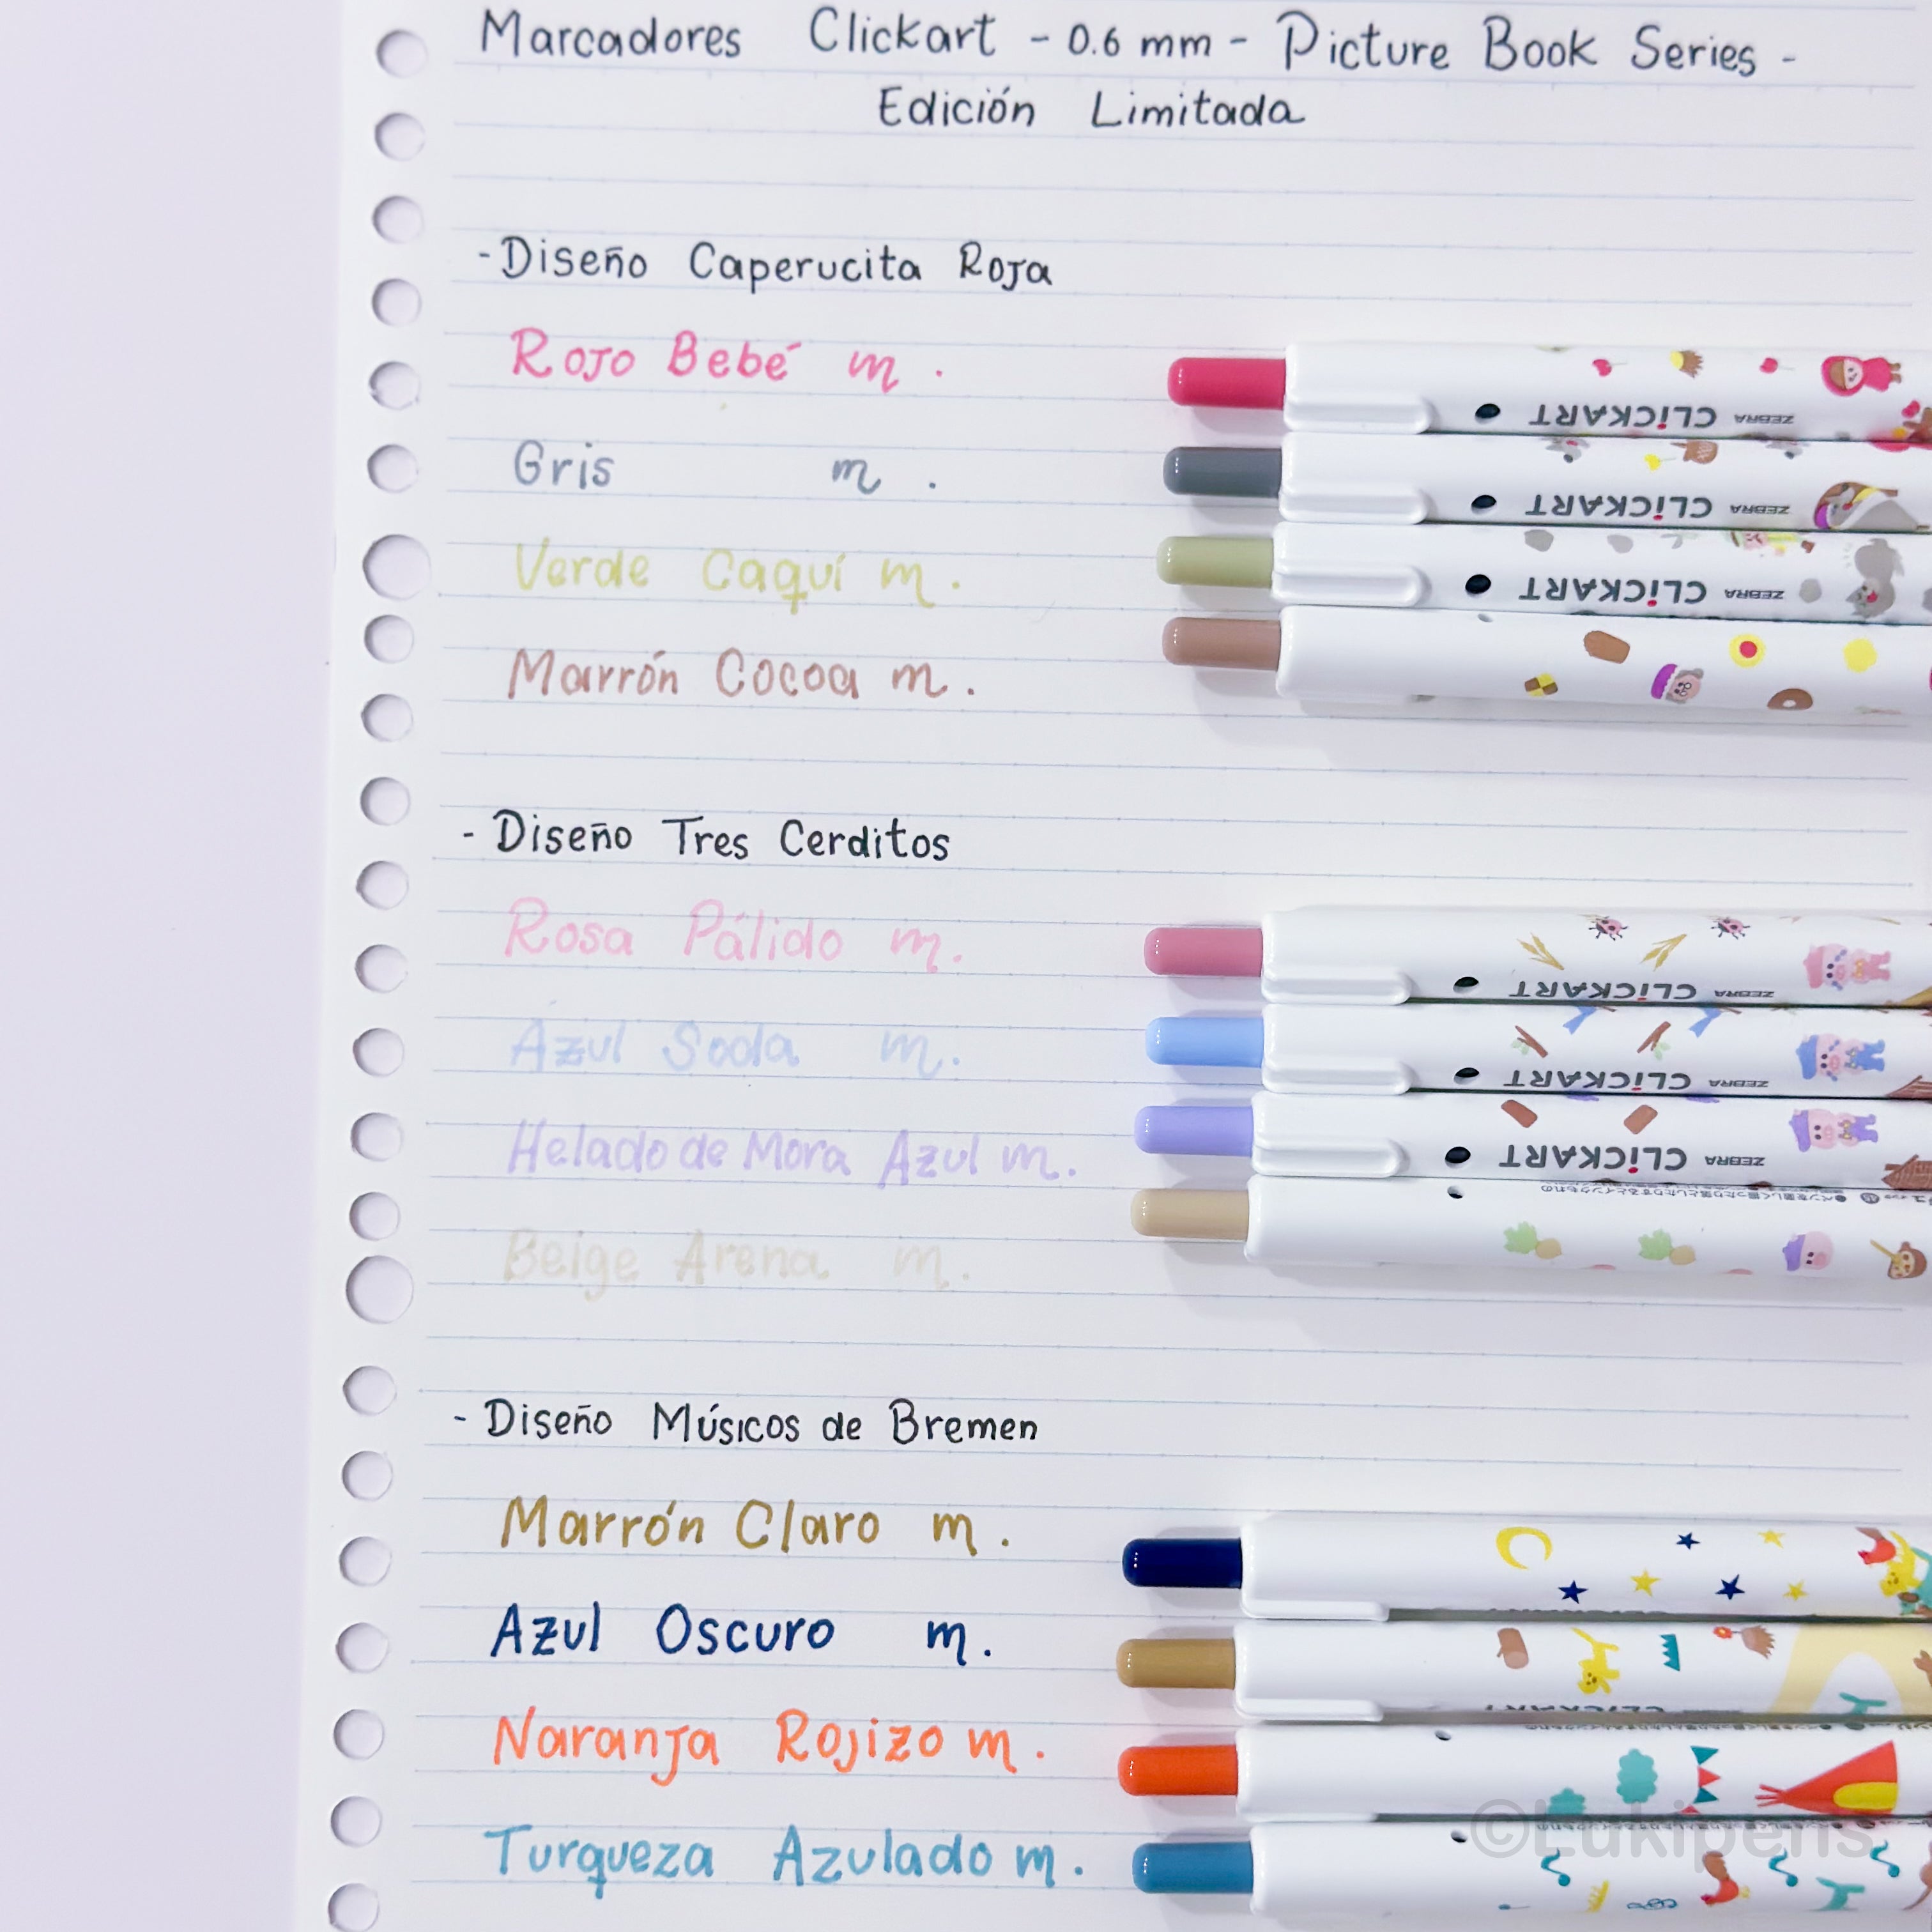 Marcadores Clickart - 0.6 mm - Picture Book Series -
Edición Limitada
- Diseño Caperucita Roja
Rojo Bebé m.
Gris m.
Verde Caquí m.
Marrón Cocoa m.
CLiCKART ZEBRA
CLiCKART ZEBRA
CLiCKART ZEBRA
- Diseño Tres Cerditos
Rosa Pálido m.
Azul Soda m.
Helado de Mora Azul m.
Beige Arena m.
CLiCKART ZEBRA
CLiCKART ZEBRA
CLiCKART ZEBRA
- Diseño Músicos de Bremen
Marrón Claro m.
Azul Oscuro m.
Naranja Rojizo m.
Turqueza Azulado m.
©Lukipens